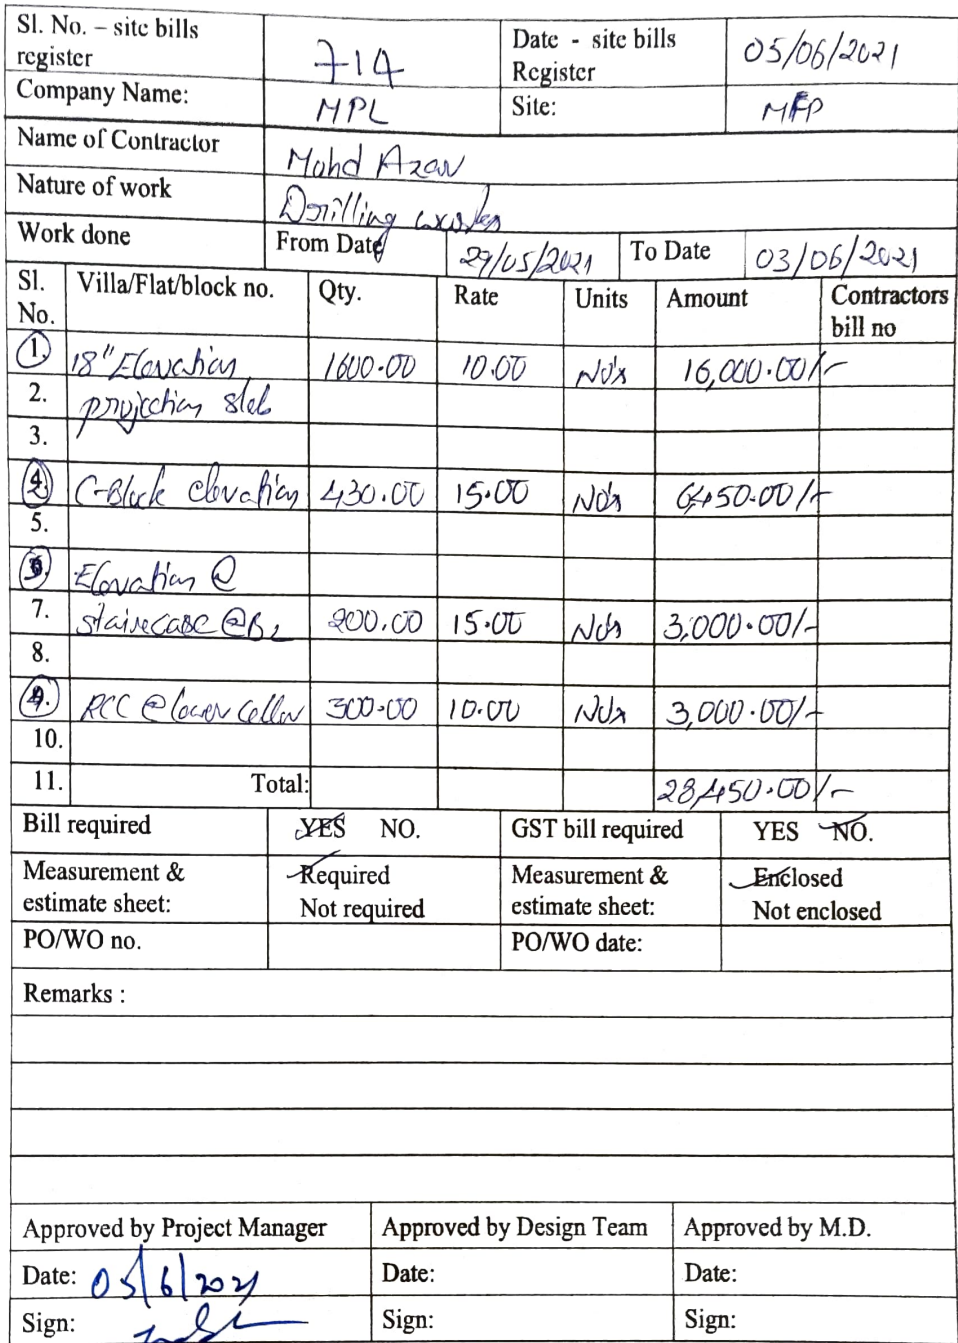 Sl. No. – site bills register 714 Date - site bills Register 05/06/2021
Company Name: MPL Site: MFP
Name of Contractor Mohd Azar
Nature of work Drilling works
Work done From Date 29/05/2021 To Date 03/06/2021
Sl. No. Villa/Flat/block no. Qty. Rate Units Amount Contractors bill no
1. 18" Elevation 1600.00 10.00 No's 16,000.00/-
2. projection slab
3.
4. C-Block elevation 430.00 15.00 No's 6,450.00/-
5.
Elevation @
7. staircase @B2 200.00 15.00 No's 3,000.00/-
8.
RCC @ lower cellar 300.00 10.00 No's 3,000.00/-
10.
11. Total: 28,450.00/-
Bill required YES NO. GST bill required YES NO.
Measurement & Required Measurement & Enclosed
estimate sheet: Not required estimate sheet: Not enclosed
PO/WO no. PO/WO date:
Remarks :
Approved by Project Manager Approved by Design Team Approved by M.D.
Date: 05/6/2021 Date: Date:
Sign: Sign: Sign: